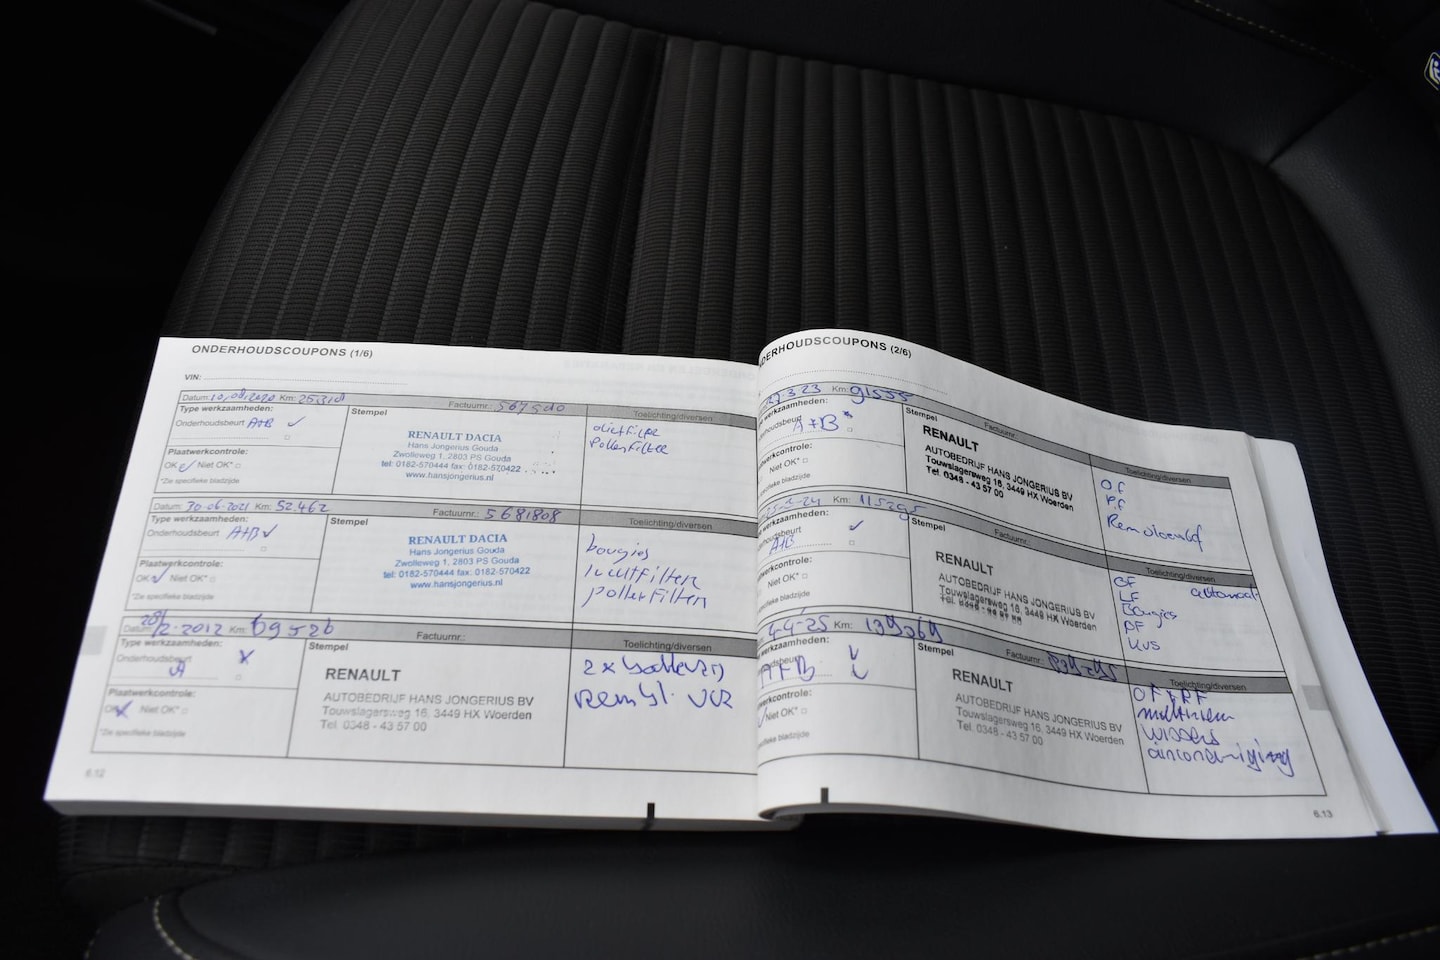 ONDERHOUDSCOUPONS (1/6)
VIN:
Datum: 10,08,2020 Km: 25318 Factuurnr.:
Type werkzaamheden:
Onderhoudsbeurt A+B ✓
Plaatwerkcontrole:
OK ✓ Niet OK* □
*Zie specifieke bladzijde
Stempel
RENAULT DACIA
Hans Jongerius Gouda
Zwolleweg 1, 2803 PS Gouda
tel: 0182-570444 fax: 0182-570422
www.hansjongerius.nl
Toelichting/diversen
oliefilter
Pollenfilter
Datum: 30-06-2021 Km: 52.462 Factuurnr.: 5681808
Type werkzaamheden:
Onderhoudsbeurt A+B ✓
Plaatwerkcontrole:
OK ✓ Niet OK* □
*Zie specifieke bladzijde
Stempel
RENAULT DACIA
Hans Jongerius Gouda
Zwolleweg 1, 2803 PS Gouda
tel: 0182-570444 fax: 0182-570422
www.hansjongerius.nl
Toelichting/diversen
bougies
luchtfilter
pollenfilter
Datum: 28/2-2012 Km: 69526 Factuurnr.:
Type werkzaamheden:
Onderhoudsbeurt
A
Plaatwerkcontrole:
OK Niet OK* □
*Zie specifieke bladzijde
Stempel
RENAULT
AUTOBEDRIJF HANS JONGERIUS BV
Touwslagersweg 16, 3449 HX Woerden
Tel. 0348 - 43 57 00
Toelichting/diversen
2x
6.12
ONDERHOUDSCOUPONS (2/6)
27-3-23 Km: 91555 Factuurnr.:
werkzaamheden:
A+B
Niet OK* □
specifieke bladzijde
Stempel
RENAULT
AUTOBEDRIJF HANS JONGERIUS BV
Touwslagersweg 16, 3449 HX Woerden
Tel. 0348 - 43 57 00
Toelichting/diversen
OF
PF
Remvloeistof
Km: 115295 Factuurnr.:
werkzaamheden:
A+B
Niet OK* □
specifieke bladzijde
Stempel
RENAULT
AUTOBEDRIJF HANS JONGERIUS BV
Touwslagersweg 16, 3449 HX Woerden
Tel. 0348 - 43 57 00
Toelichting/diversen
OF automaat
LF
Bougies
PF
4-4-25 Km: 139069 Factuurnr.:
werkzaamheden:
A+B
Niet OK* □
specifieke bladzijde
Stempel
RENAULT
AUTOBEDRIJF HANS JONGERIUS BV
Touwslagersweg 16, 3449 HX Woerden
Tel. 0348 - 43 57 00
Toelichting/diversen
OF+PF
multiriem
wissers
aircoreiniging
6.13